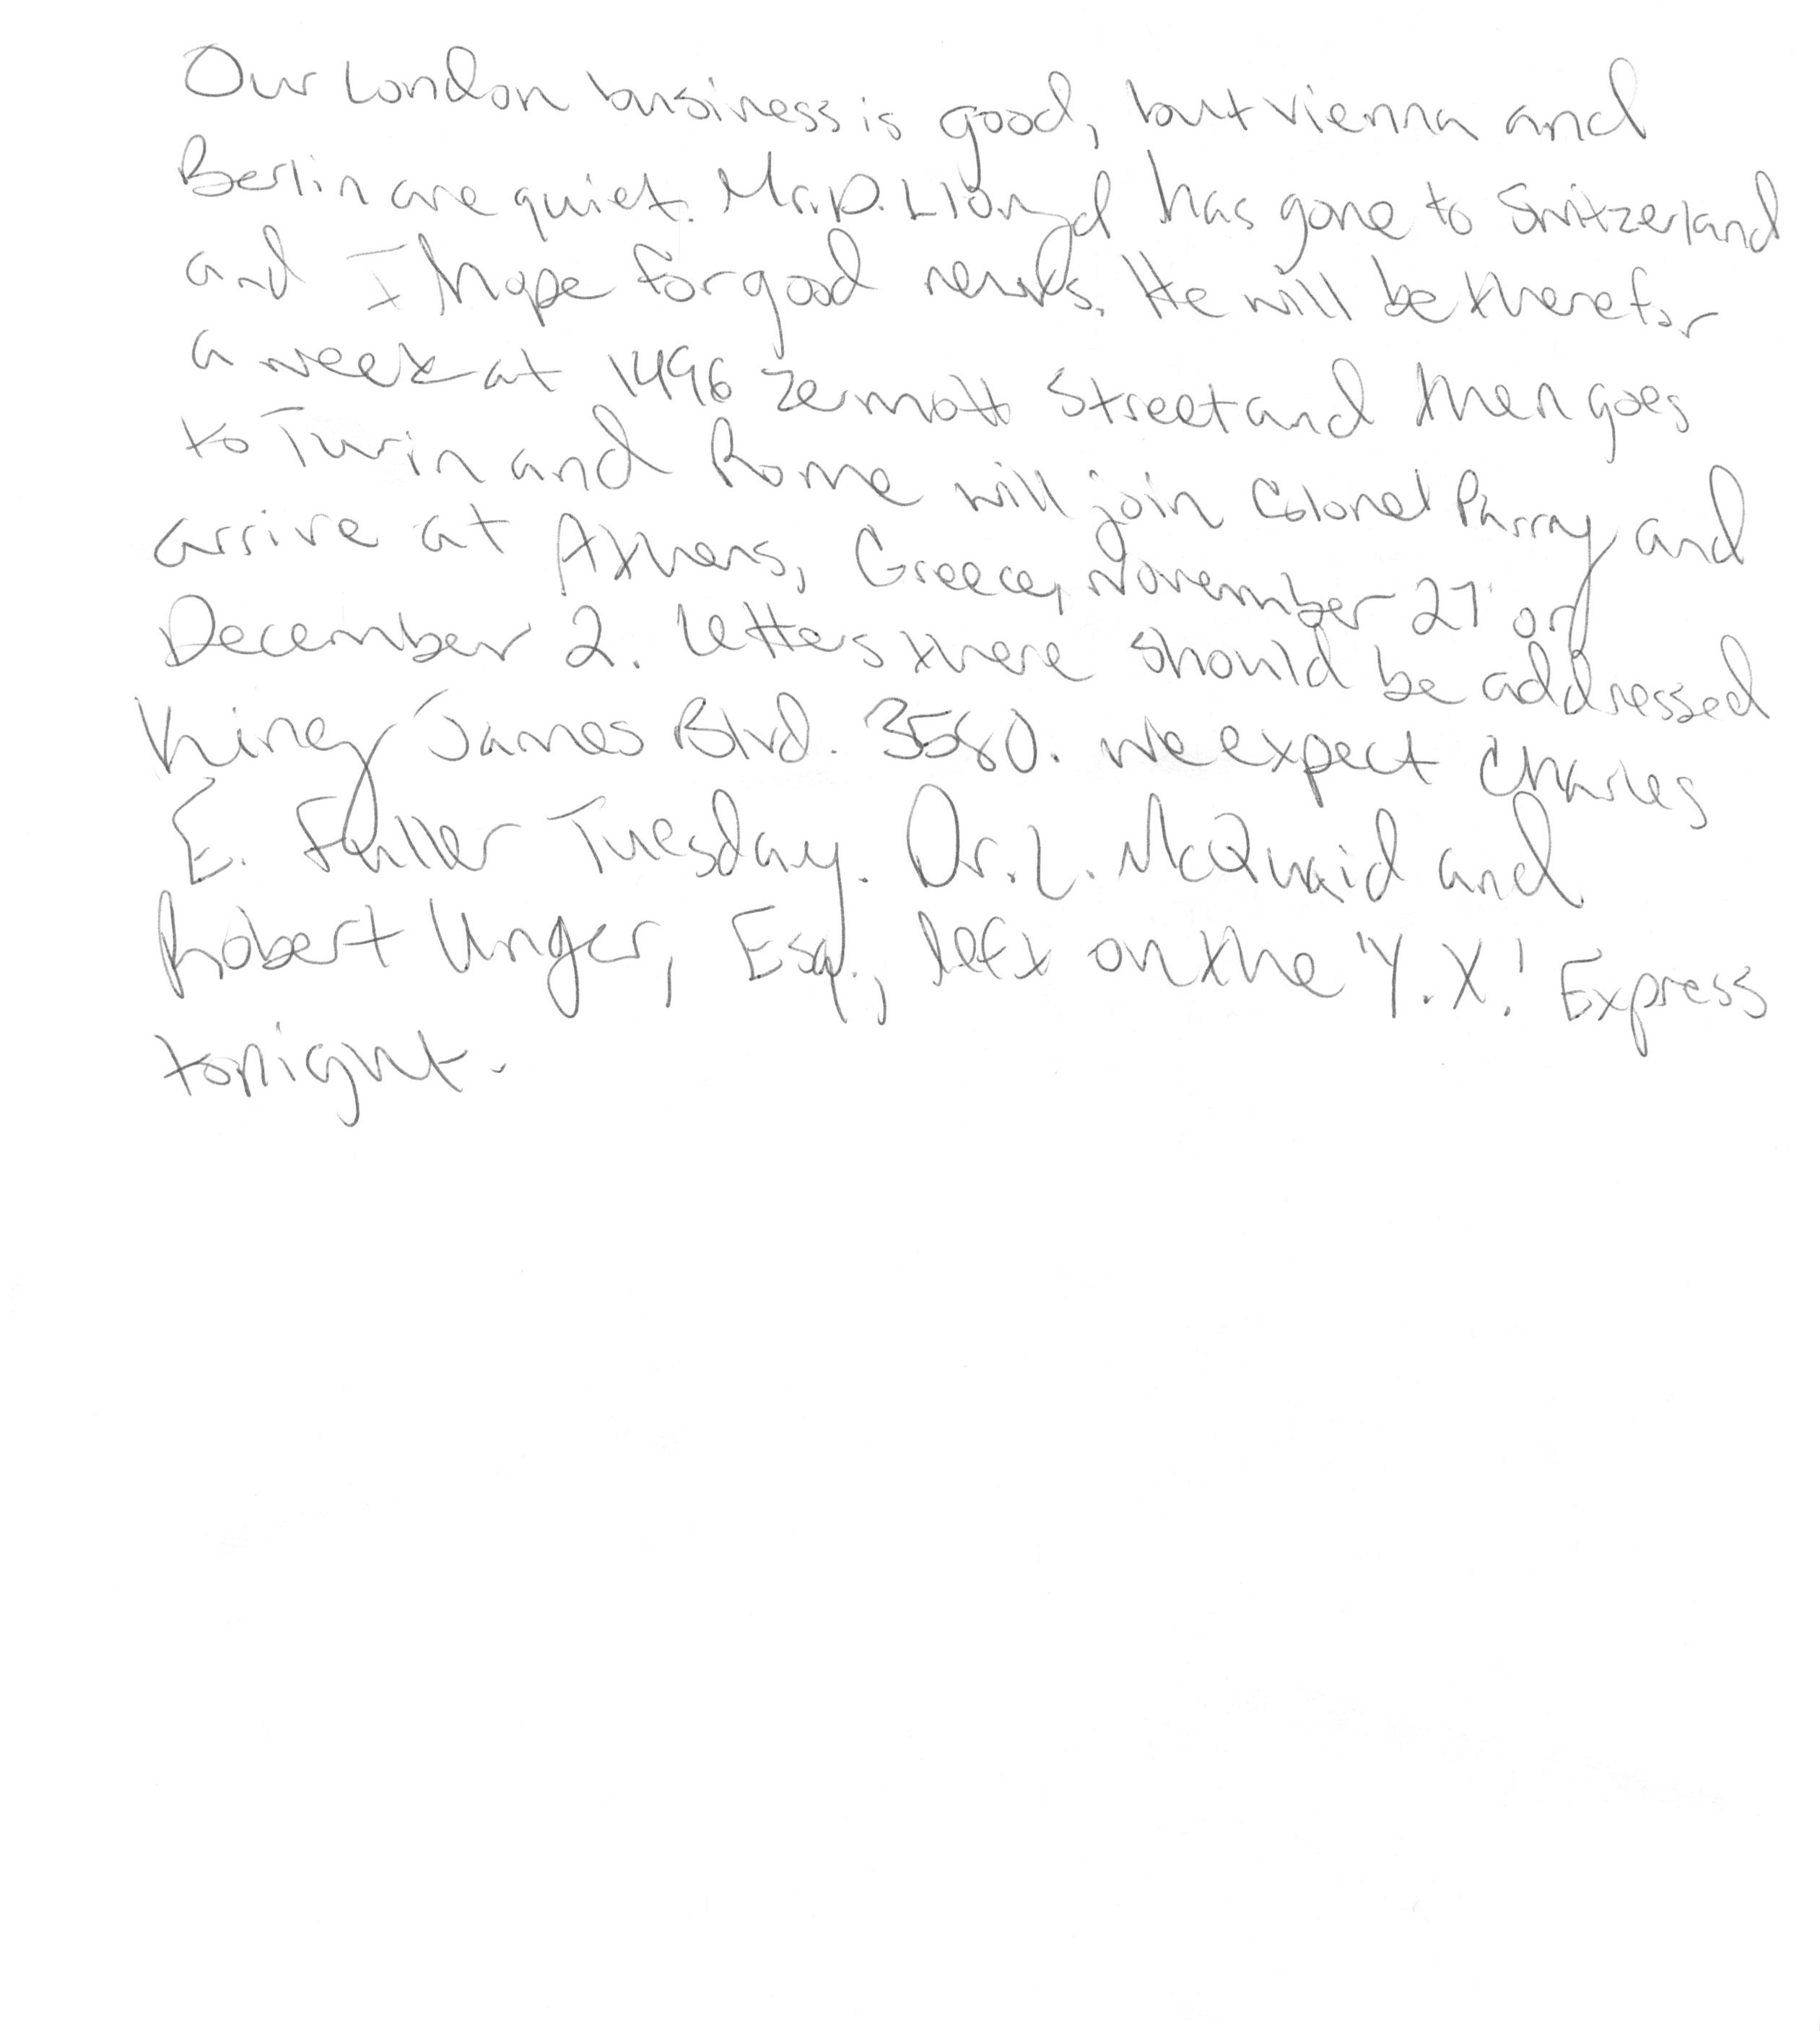 Our London business is good, but Vienna and
Berlin are quiet. Mr. D. Lloyd has gone to Switzerland
and I hope for good news. He will be there for
a week at 1496 Zermott Street and then goes
to Turin and Rome will join Colonel Parry and
arrive at Athens, Greece, November 27 or
December 2. Letters there should be addressed
King James Blvd. 3580. We expect Charles
E. Fuller Tuesday. Dr. L. McQuaid and
Robert Unger, Esq., left on the 'Y.X.' Express
tonight.